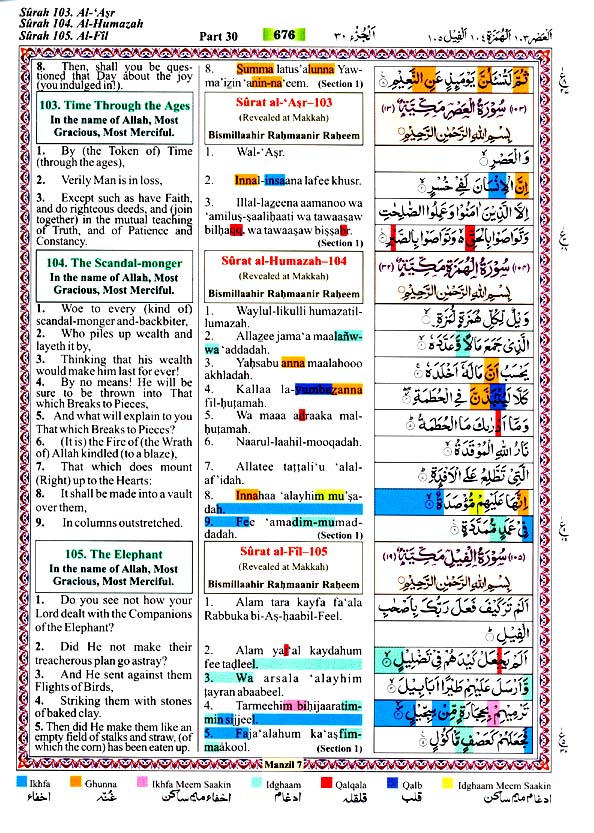 Sûrah 103. Al-‘Aṣr
Sûrah 104. Al-Humazah
Sûrah 105. Al-Fîl
Part 30
676
اَلْجُزْء ٣٠
العصر ١٠٣ الهمزة ١٠٤ الفيل ١٠٥
8. Then, shall you be ques-
tioned that Day about the joy
(you indulged in!).
103. Time Through the Ages
In the name of Allah, Most
Gracious, Most Merciful.
1. By (the Token of) Time
(through the ages),
2. Verily Man is in loss,
3. Except such as have Faith,
and do righteous deeds, and (join
together) in the mutual teaching
of Truth, and of Patience and
Constancy.
104. The Scandal-monger
In the name of Allah, Most
Gracious, Most Merciful.
1. Woe to every (kind of)
scandal-monger and-backbiter,
2. Who piles up wealth and
layeth it by,
3. Thinking that his wealth
would make him last for ever!
4. By no means! He will be
sure to be thrown into That
which Breaks to Pieces.
5. And what will explain to you
That which Breaks to Pieces?
6. (It is) the Fire of (the Wrath
of) Allah kindled (to a blaze),
7. That which does mount
(Right) up to the Hearts:
8. It shall be made into a vault
over them,
9. In columns outstretched.
105. The Elephant
In the name of Allah, Most
Gracious, Most Merciful.
1. Do you see not how your
Lord dealt with the Companions
of the Elephant?
2. Did He not make their
treacherous plan go astray?
3. And He sent against them
Flights of Birds,
4. Striking them with stones
of baked clay.
5. Then did He make them like an
empty field of stalks and straw, (of
which the corn) has been eaten up.
8. Summa latus’alunna Yaw-
ma’iẓin ‘anin-na‘eem. (Section 1)
Sûrat al-‘Aṣr–103
(Revealed at Makkah)
Bismillaahir Raḥmaanir Raḥeem
1. Wal-‘Aṣr.
2. Innal-insaana lafee khusr.
3. Illal-laẓeena aamanoo wa
‘amiluṣ-ṣaaliḥaati wa tawaaṣaw
bilḥaqq, wa tawaaṣaw biṣṣabr.
(Section 1)
Sûrat al-Humazah–104
(Revealed at Makkah)
Bismillaahir Raḥmaanir Raḥeem
1. Waylul-likulli humazatil-
lumazah.
2. Allaẓee jama‘a maalañw-
wa ‘addadah.
3. Yaḥsabu anna maalahooo
akhladah.
4. Kallaa la-yumbaẓanna
fil-ḥuṭamah.
5. Wa maaa adraaka mal-
ḥuṭamah.
6. Naarul-laahil-mooqadah.
7. Allatee taṭṭali‘u ‘alal-
af’idah.
8. Innahaa ‘alayhim mu’ṣa-
dah.
9. Fee ‘amadim-mumad-
dadah. (Section 1)
Sûrat al-Fîl–105
(Revealed at Makkah)
Bismillaahir Raḥmaanir Raḥeem
1. Alam tara kayfa fa‘ala
Rabbuka bi-Aṣ-ḥaabil-Feel.
2. Alam yaj‘al kaydahum
fee taḍleel.
3. Wa arsala ‘alayhim
ṭayran abaabeel.
4. Tarmeehim biḥijaaratim-
min sijjeel.
5. Faja‘alahum ka‘aṣfim-
maakool. (Section 1)
ثُمَّ لَتُسْـَٔلُنَّ يَوْمَئِذٍ عَنِ النَّعِيْمِ ۝
(١٠٣) سُوْرَةُ الْعَصْرِ مَكِّيَّةٌ (١٣)
بِسْمِ اللهِ الرَّحْمٰنِ الرَّحِيْمِ
وَالْعَصْرِ ۝
اِنَّ الْاِنْسَانَ لَفِيْ خُسْرٍ ۝
اِلَّا الَّذِيْنَ اٰمَنُوْا وَعَمِلُوا الصّٰلِحٰتِ
وَتَوَاصَوْا بِالْحَقِّ ۙ وَتَوَاصَوْا بِالصَّبْرِ ۝
سُوْرَةُ الْهُمَزَةِ مَكِّيَّةٌ (٣٢)
بِسْمِ اللهِ الرَّحْمٰنِ الرَّحِيْمِ
وَيْلٌ لِّكُلِّ هُمَزَةٍ لُّمَزَةٍ ۝
الَّذِيْ جَمَعَ مَالًا وَّعَدَّدَهٗ ۝
يَحْسَبُ اَنَّ مَالَهٗٓ اَخْلَدَهٗ ۝
كَلَّا لَيُنْۢبَذَنَّ فِي الْحُطَمَةِ ۝
وَمَآ اَدْرٰىكَ مَا الْحُطَمَةُ ۝
نَارُ اللهِ الْمُوْقَدَةُ ۝
الَّتِيْ تَطَّلِعُ عَلَى الْاَفْـِٕدَةِ ۝
اِنَّهَا عَلَيْهِمْ مُّؤْصَدَةٌ ۝
فِيْ عَمَدٍ مُّمَدَّدَةٍ ۝
(١٠٥) سُوْرَةُ الْفِيْلِ مَكِّيَّةٌ (١٩)
بِسْمِ اللهِ الرَّحْمٰنِ الرَّحِيْمِ
اَلَمْ تَرَ كَيْفَ فَعَلَ رَبُّكَ بِاَصْحٰبِ
الْفِيْلِ ۝
اَلَمْ يَجْعَلْ كَيْدَهُمْ فِيْ تَضْلِيْلٍ ۝
وَّاَرْسَلَ عَلَيْهِمْ طَيْرًا اَبَابِيْلَ ۝
تَرْمِيْهِمْ بِحِجَارَةٍ مِّنْ سِجِّيْلٍ ۝
فَجَعَلَهُمْ كَعَصْفٍ مَّاْكُوْلٍ ۝
Manzil 7
Ikhfa Ghunna Ikhfa Meem Saakin Idghaam Qalqala Qalb Idghaam Meem Saakin
اخفاء غنّه اخفاء میم ساکن ادغام قلقله قلب ادغام میم ساکن